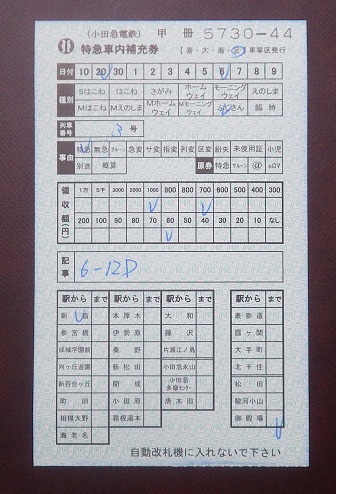 (小田急電鉄) 甲 冊 5730-44
特急車内補充券 【喜・大・海・足】車掌区発行
日付 10 20 30 1 2 3 4 5 6 7 8 9
種別 Sはこね はこね さがみ ホームウェイ モーニングウェイ えのしま
Mはこね Mえのしま Mホームウェイ Mモーニングウェイ ふじさん 臨時
列車番号 3 号
事由 特急 無急 サルーン 急変 サ変 指変 列変 区変 紛失 未使用証 小児
別途 概算 原券 特急 サルーン @ eロマ
領収額(円) 1万 5千 3000 2000 1000 900 800 700 600 500 400 300
200 100 90 80 70 60 50 40 30 20 10 なし
記事 6-12D
駅から まで 駅から まで 駅から まで
新宿 本厚木 大和 表参道
参宮橋 伊勢原 藤沢 霞ヶ関
成城学園前 秦野 片瀬江ノ島 大手町
向ヶ丘遊園 新松田 小田急永山 北千住
新百合ヶ丘 開成 小田急多摩センター 松田
町田 小田原 唐木田 駿河小山
相模大野 箱根湯本 御殿場
海老名
自動改札機に入れないで下さい